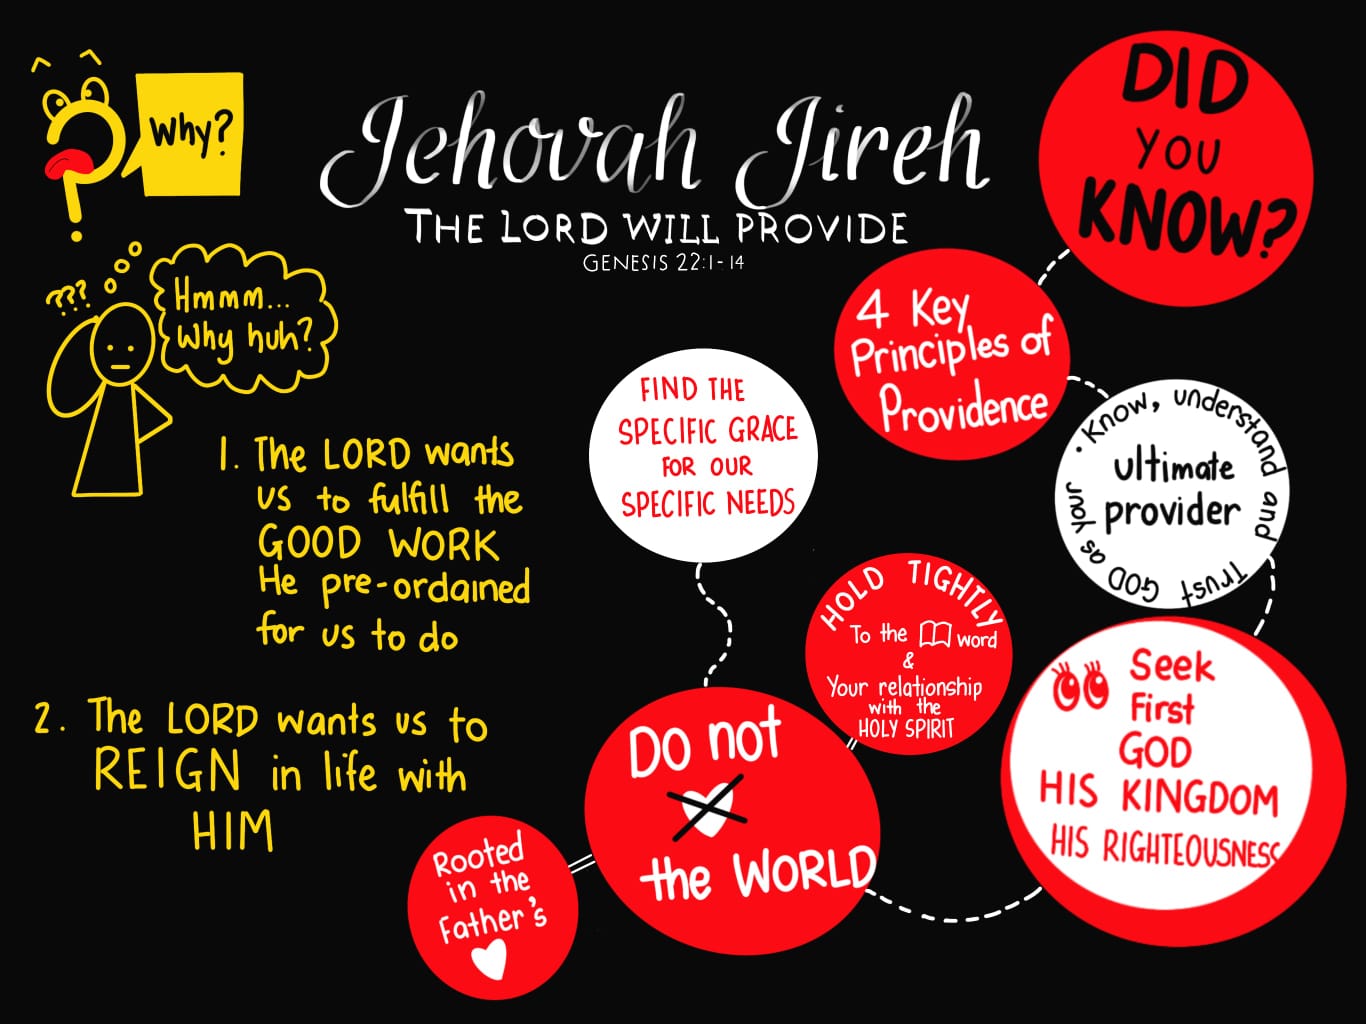 Why?
Jehovah Jireh
THE LORD WILL PROVIDE
GENESIS 22:1-14
???
Hmmm...
Why huh?
1. The LORD wants
us to fulfill the
GOOD WORK
He pre-ordained
for us to do
2. The LORD wants us to
REIGN in life with
HIM
DID
YOU
KNOW?
4 Key
Principles of
Providence
• Know, understand and Trust GOD as your
ultimate
provider
Seek
First
GOD
HIS KINGDOM
HIS RIGHTEOUSNESS
Do not
the WORLD
HOLD TIGHTLY
To the word
&
Your relationship
with the
HOLY SPIRIT
Rooted
in the
Father's
FIND THE
SPECIFIC GRACE
FOR OUR
SPECIFIC NEEDS